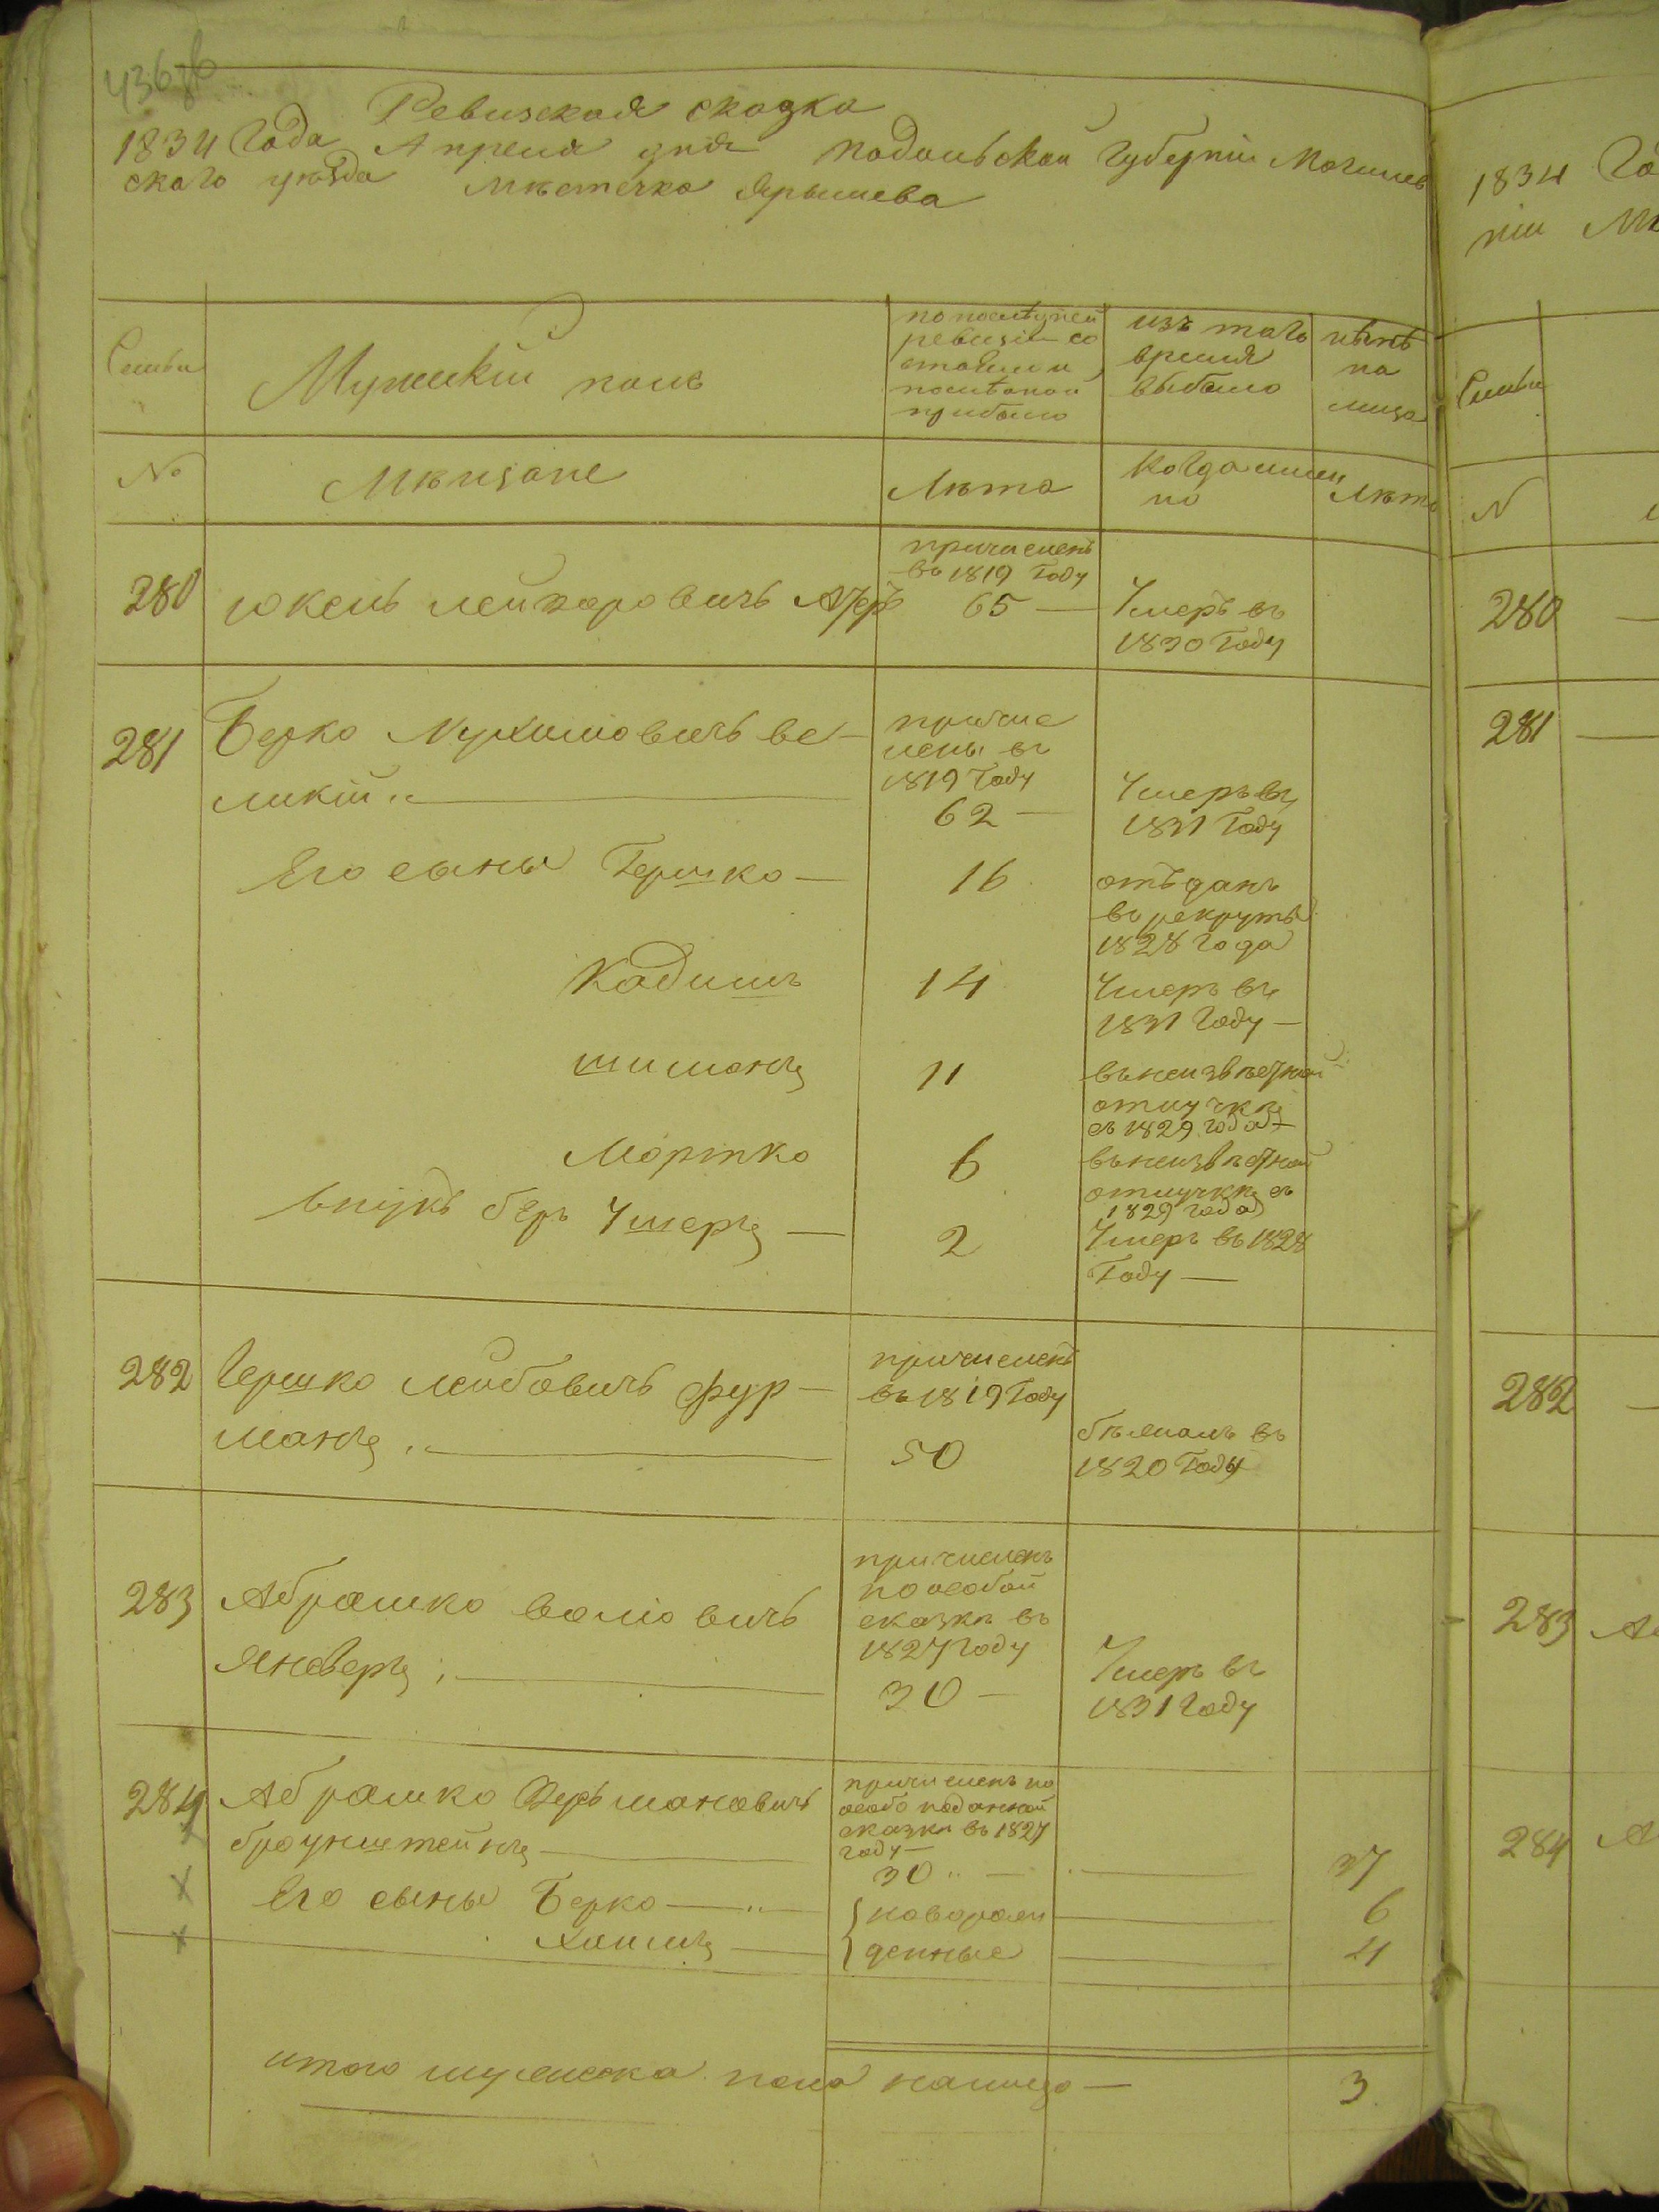 Ревизская сказка
1834 Года Апреля дня Подольской Губерніи Могилев
скаго уѣзда Мѣстечка Ярышева
Семьи
Мужескій полъ
по последней
ревизіи со
стояло и
после оной
прибыло
изъ того
время
выбыло
нынѣ
на
лицо
№
Мѣщане
Лѣта
Когда имен
но
Лѣта
280
Юкель Лейзоровичъ
причисленъ
въ 1819 Году
65 —
Умеръ въ
1830 Году
281
Берко Мухимовичъ ве-
ликій
причис
лены въ
1819 Году
62 —
Умеръ въ
1831 Году
Его сыны Гершко —
16
отъданъ
въ рекруты
1828 Года
Кадишъ
14
Умеръ въ
1831 Году —
шиманъ
11
въ неизвѣстной
отлучкѣ
съ 1829 года —
Мортко
6
въ неизвѣстной
отлучкѣ съ
1829 года
внукъ беръ Умеръ —
2
Умеръ въ 1828
Году —
282
Гершко Лейбовичъ фур-
манъ
причисленъ
въ 1819 Году
50
бѣжалъ въ
1820 Году
283
Абрамко Волio вичъ
Январъ
причисленъ
по особой
сказкѣ въ
1827 Году
30 —
Умеръ въ
1831 Году
284
Абрамко Герьшановичъ
броунштейнъ
причисленъ по
особо поданной
сказки въ 1827
году —
30
37
Его сыны Берко —
новорож
6
Хаимъ —
денные
4
итого мужеска пола налицо —
3
1834 Го
ніи Мо
Семьи
N
280
281
282
283 Аб
284 А